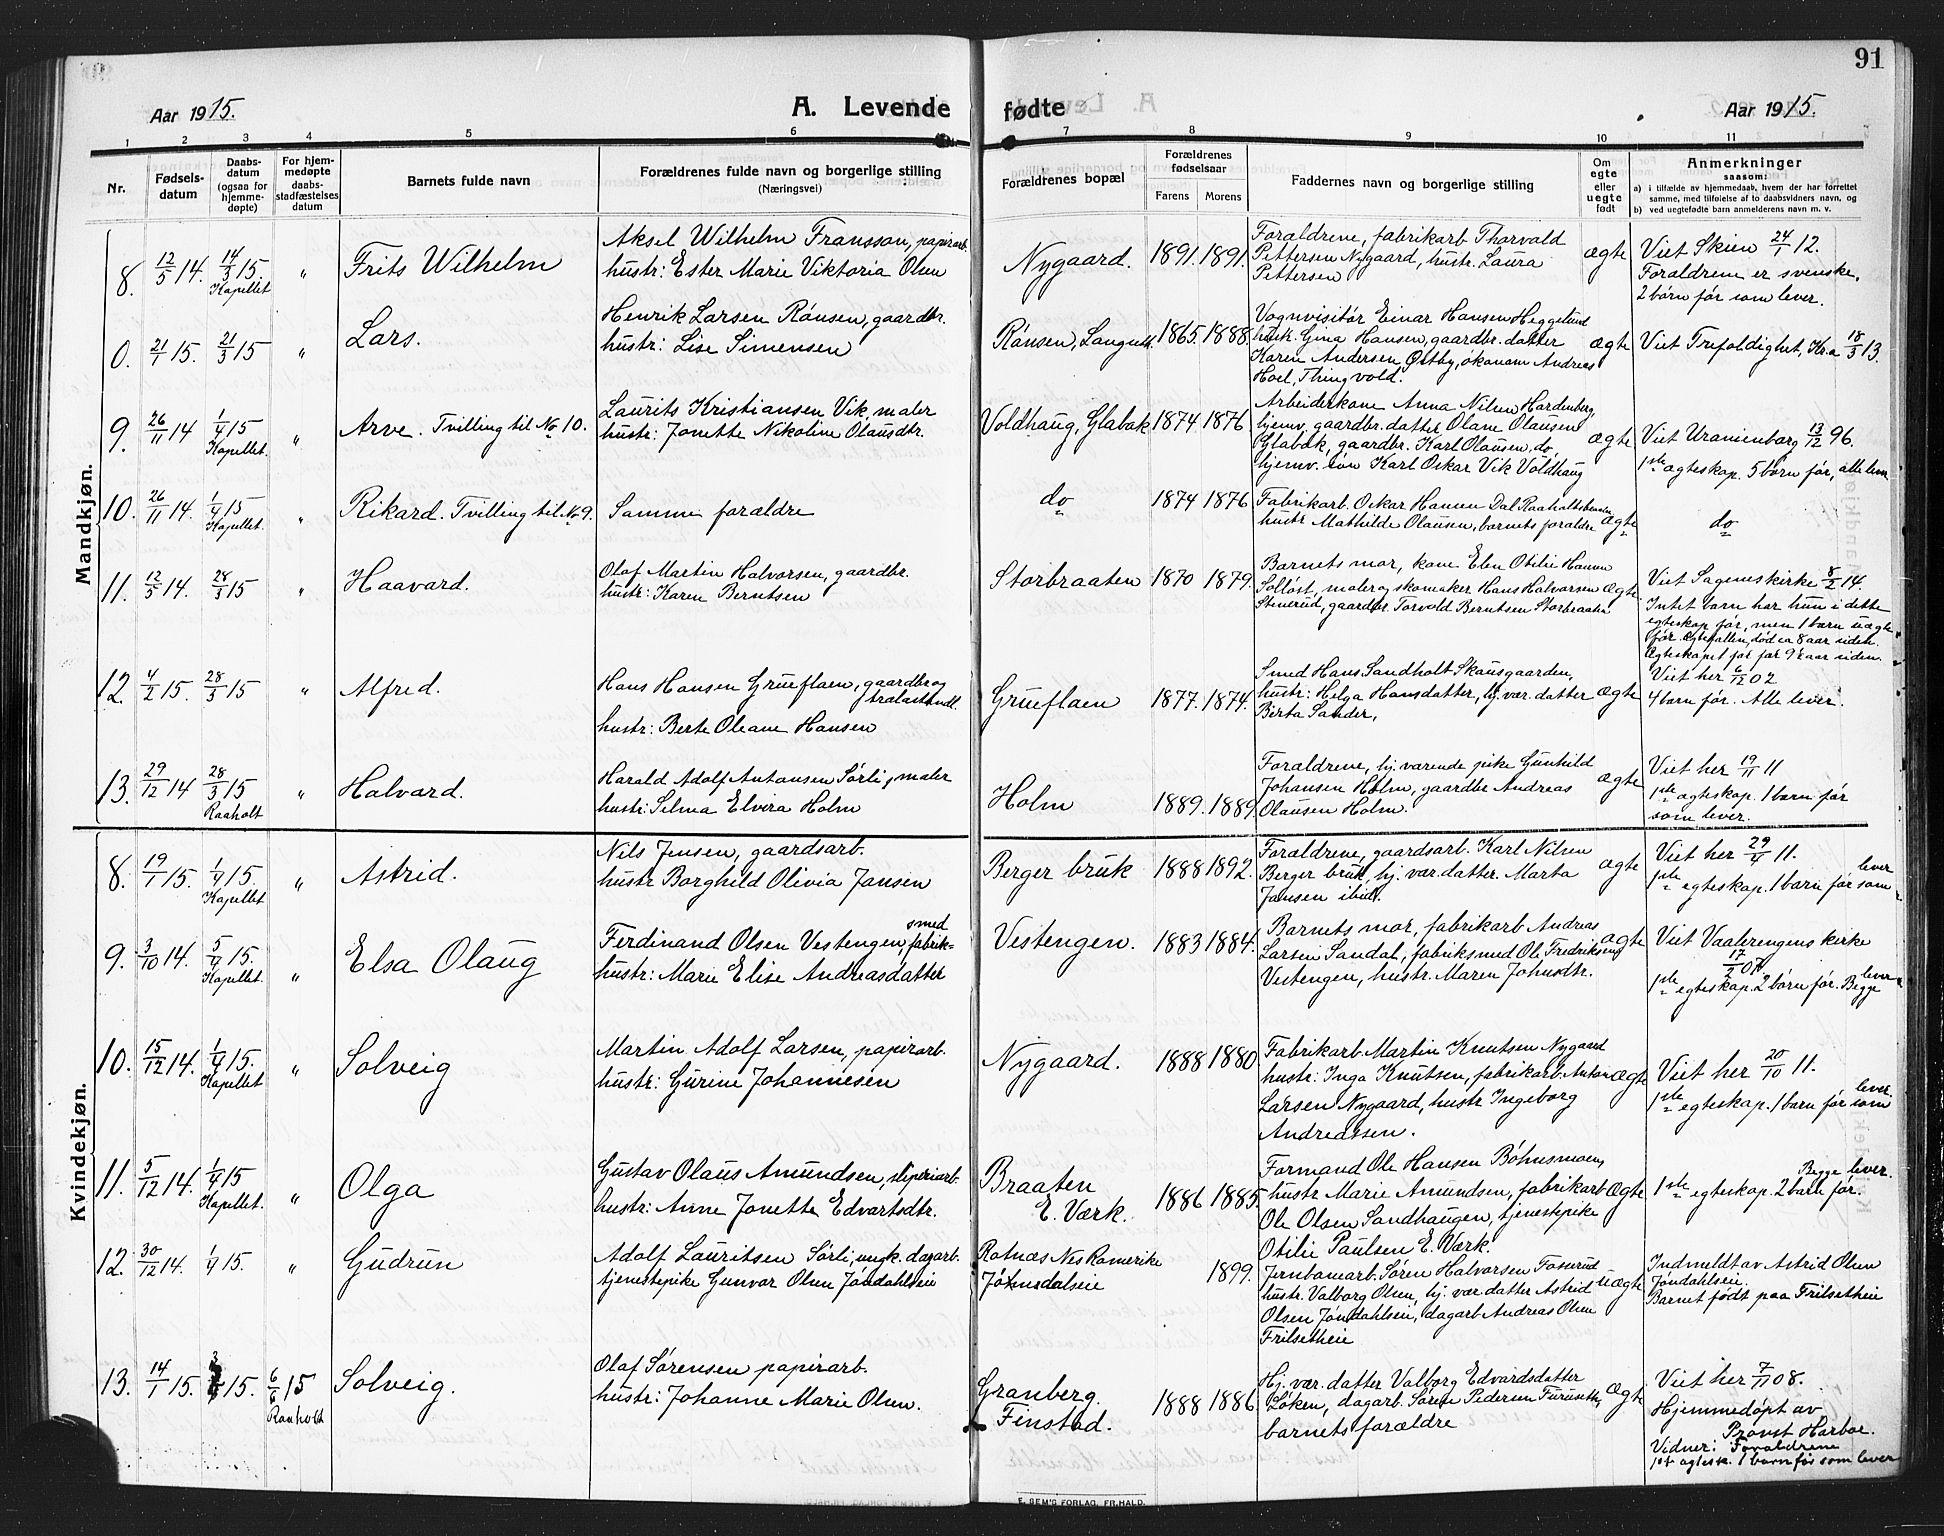 91
Aar 1915.
A. Levende fødte
Aar 1915.
1 2 3 4 5 6 7 8 9 10 11
Nr.
Fødsels-
datum
Daabs-
datum
(ogsaa for
hjemme-
døpte)
For hjem-
medøpte
daabs-
stadfæstelses
datum
Barnets fulde navn
Forældrenes fulde navn og borgerlige stilling
(Næringsvei)
Forældrenes bopæl
Forældrenes
fødselsaar
Farens Morens
Faddernes navn og borgerlige stilling
Om
egte
eller
uegte
født
Anmerkninger
saasom:
a) i tilfælde av hjemmedaab, hvem der har forrettet
samme, med tilføielse af to daabsvidners navn, og
b) ved uegtefødte barn anmelderens navn m. v.
Mandkjøn.
8. 12/5 14. 14/3 15. Kapellet " Frits Wilhelm
Aksel Wilhelm Fransson, papirarb.
hustr: Ester Marie Viktoria Olsen
Nygaard. 1891. 1891.
Forældrene, fabrikarb Thorvald
Pettersen Nygaard, hustr. Laura
Pettersen
ægte
Viet Skien 24/1 12.
Forældrene er svenske.
2 børn før som lever.
0. 21/1 15. 21/3 15 " Lars.
Henrik Larsen Rønsen, gaardbr.
hustr: Lise Simensen
Rønsen, Langset 1865. 1888.
Vognvisitør Einar Hansen Heggelund
hustr. Gina Hansen, gaardbr. datter
Karen Andersen Østby, økonom Andreas
Hoel, Thingvold.
ægte
Viet Trefoldighet, Kr.a 18/3 13.
9. 26/11 14 1/4 15 Kapellet. " Arve. Tvilling til No 10.
Laurits Kristiansen Vik, maler
hustr: Jonette Nikoline Olausdtr.
Voldhaug, Glabak 1874. 1876
Arbeiderkone Anna Nilsen Hardenberg
hjemv. gaardbr. datter Olane Olausen
Glabak, gaardbr. Karl Olausen, do
hjemv. søn Karl Oskar Vik Voldhaug
ægte
Viet Uranienborg 13/12 96.
1ste ægteskap. 5 børn før, alle lever
10. 26/11 14. 1/4 15 Kapellet. " Rikard. Tvilling til No 9.
Samme forældre
do 1874 1876
Fabrikarb. Oskar Hansen Dal Raaholtsbunden
hustr Mathilde Olausen, barnets forældre
ægte
do
11. 12/5 14. 28/3 15 " Haavard.
Olaf Martin Halvorsen, gaardbr.
hustr: Karen Berntsen
Storbraaten 1870 1879.
Barnets mor, kone Elen Otilie Hansen
Solløst, maler og skomaker Hans Halvorsen
Stenerud, gaardbr. Torvold Berntsen Storbraaten
ægte.
Viet Sagenes kirke 8/2 14.
Intet barn har hun i dette
egteskap før, men 1 barn uægte
før. død ca 8 aar siden.
12. 4/2 15. 28/3 15 " Alfred.
Hans Hansen Grueflaen, gaardbr og
trælasthandl.
hustr: Berte Oleane Hansen
Grueflaen 1877. 1874.
Smed Hans Sandholt Skausgaarden,
hustr: Helga Hansdatter, hj. vær. datter
Birta Sander,
ægte
Viet her 6/12 02
4 børn før. Alle lever.
13. 29/12 14 28/3 15 Raaholt " Halvard.
Harald Adolf Antonsen Sørli, maler
hustr: Selma Elvira Holm
Holm 1889. 1889.
Forældrene, hj. værende pike Gunhild
Johansen Holm, gaardbr Andreas
Olausen Holm.
ægte
Viet her 19/11 11
1ste ægteskap. 1 barn før
som lever.
Kvindekjøn.
8. 19/1 15. 1/4 15. Kapellet " Astrid.
Nils Jensen, gaardsarb.
hustr Borghild Olivia Jansen
Berger bruk 1888 1892.
Forældrene, gaardsarb. Karl Nilsen
Berger bruk, hj. vær. datter. Marta
Jansen ibid.
ægte
Viet her 29/4 11.
1ste egteskap. 1 barn før som lever
9. 3/10 14. 5/4 15. Kapellet. " Elsa Olaug
Ferdinand Olsen Vestengen, fabrik=smed
hustr: Marie Elise Andreasdatter
Vestengen. 1883 1884.
Barnets mor, fabrikarb Andreas
Larsen Sandal, fabriksmed Ole Fredriksen
Vestengen, hustr. Maren Johusdtr.
ægte
Viet Vaalerengens kirke
17/2
1ste egteskap. 2 børn før. Begge lever
10. 15/12 14. 1/4 15. Kapellet " Solveig
Martin Adolf Larsen, papirarb.
hustr: Gurine Johannesen
Nygaard. 1888 1880
Fabrikarb. Martin Knutsen Nygaard
hustr: Inga Knutsen, fabrikarb. Anton
Larsen Nygaard, hustr Ingeborg
Andreassen.
ægte
Viet her 20/10 11.
1ste egteskap. 1 barn før som lever.
11. 5/12 14. 1/4 15 Kapellet. " Olga
Gustav Olaus Amundsen, sliperiarb.
hustr: Anne Jonette Edvartsdtr.
Braaten
E. Værk. 1886 1885.
Formand Ole Hansen Bøhnsmoen,
hustr Marie Amundsen, fabrikarb
Ole Olsen Sandhaugen, tjenestpike
Otilie Paulsen E. Værk.
ægte
1ste egteskap. 2 barn før. Begge lever.
12. 30/12 14. 1/4 15. " Gudrun
Adolf Lauritsen Sørli, ungk. dagarb.
tjenestepike Gunvor Olsen Jøndahlseie
Rotnæs Nes Romerike
Jøhnsdalseie 1899.
Jernbanearb. Søren Halvorsen Fosserud
hustr. Valborg Olsen, hj. vær datter Astrid
Olsen Jøndahlseie, dagarb Andreas Olsen
Frilsetheie
uægte
Indmeldt av Astrid Olsen
Jøndahlseie.
Barnet født paa Frilsetheie
13. 14/1 15. 15. 6/6 15 Raaholt Solveig.
Olaf Sørensen papirarb.
hustr: Johanne Marie Olsen.
Granberg
Finstad. 1888 1886.
Hj. vær. datter Valborg Edvardsdatter
Løken, dagarb. Søren Pedersen Furuseth,
barnets forældre
ægte
Viet her 7/11 08.
Hjemmedøpt av
Provst Harboe.
Vidner: Forældrene
1st ægtesk. 1 barn før som lever
E. SEM'S FORLAG, FR.HALD.